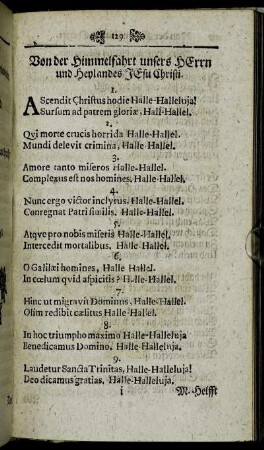 129
Von der Himmelfahrt unsers HErrn
und Heylandes JEsu Christi.
1.
AScendit Christus hodie Halle-Halleluja!
Sursum ad patrem gloriæ, Hall-Hallel.
2.
Qvi morte crucis horrida Halle-Hallel.
Mundi delevit crimina, Halle-Hallel.
3.
Amore tanto miseros Halle-Hallel.
Complexus est nos homines, Halle-Hallel.
4.
Nunc ergo victor inclytus, Halle-Hallel.
Conregnat Patri similis. Halle-Hallel.
5.
Atqve pro nobis miseris Halle-Hallel.
Intercedit mortalibus. Halle-Hallel.
6.
O Galilæi homines, Halle Hallel.
In cœlum qvid aspicitis? Halle-Hallel.
7.
Hinc ut migravit Dominus, Halle-Hallel.
Olim redibit cælitus Halle-Hallel.
8.
In hoc triumpho maximo Halle-Halleluja
Benedicamus Domino, Halle Halleluja.
9.
Laudetur Sancta Trinitas, Halle-Halleluja!
Deo dicamus gratias, Halle-Halleluja.
i M. Helfft